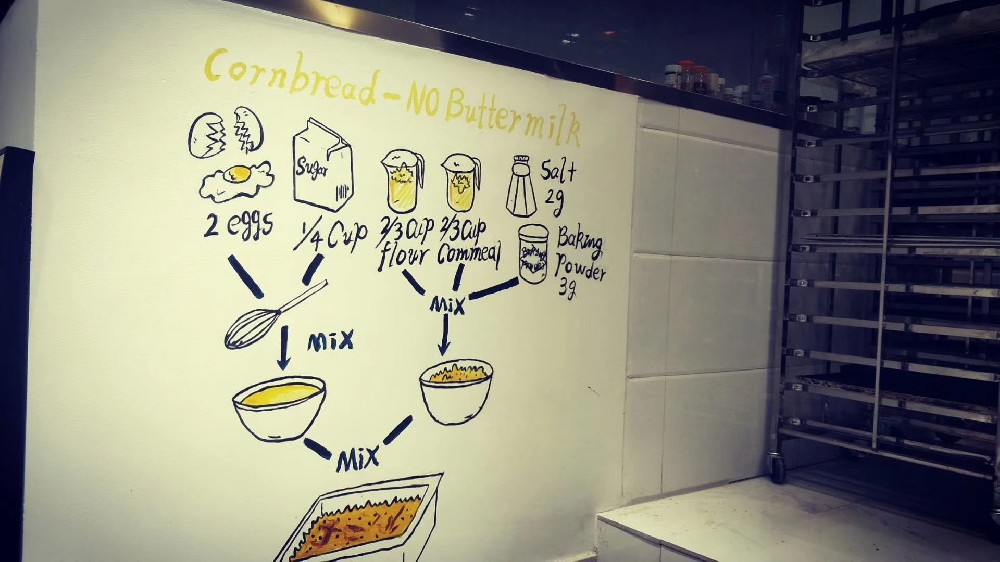 Cornbread - NO Buttermilk
Sugar
Salt
2g
2 eggs
1/4 Cup
2/3 Cup
flour
2/3 Cup
Cornmeal
Baking
Powder
3g
Mix
Mix
Mix